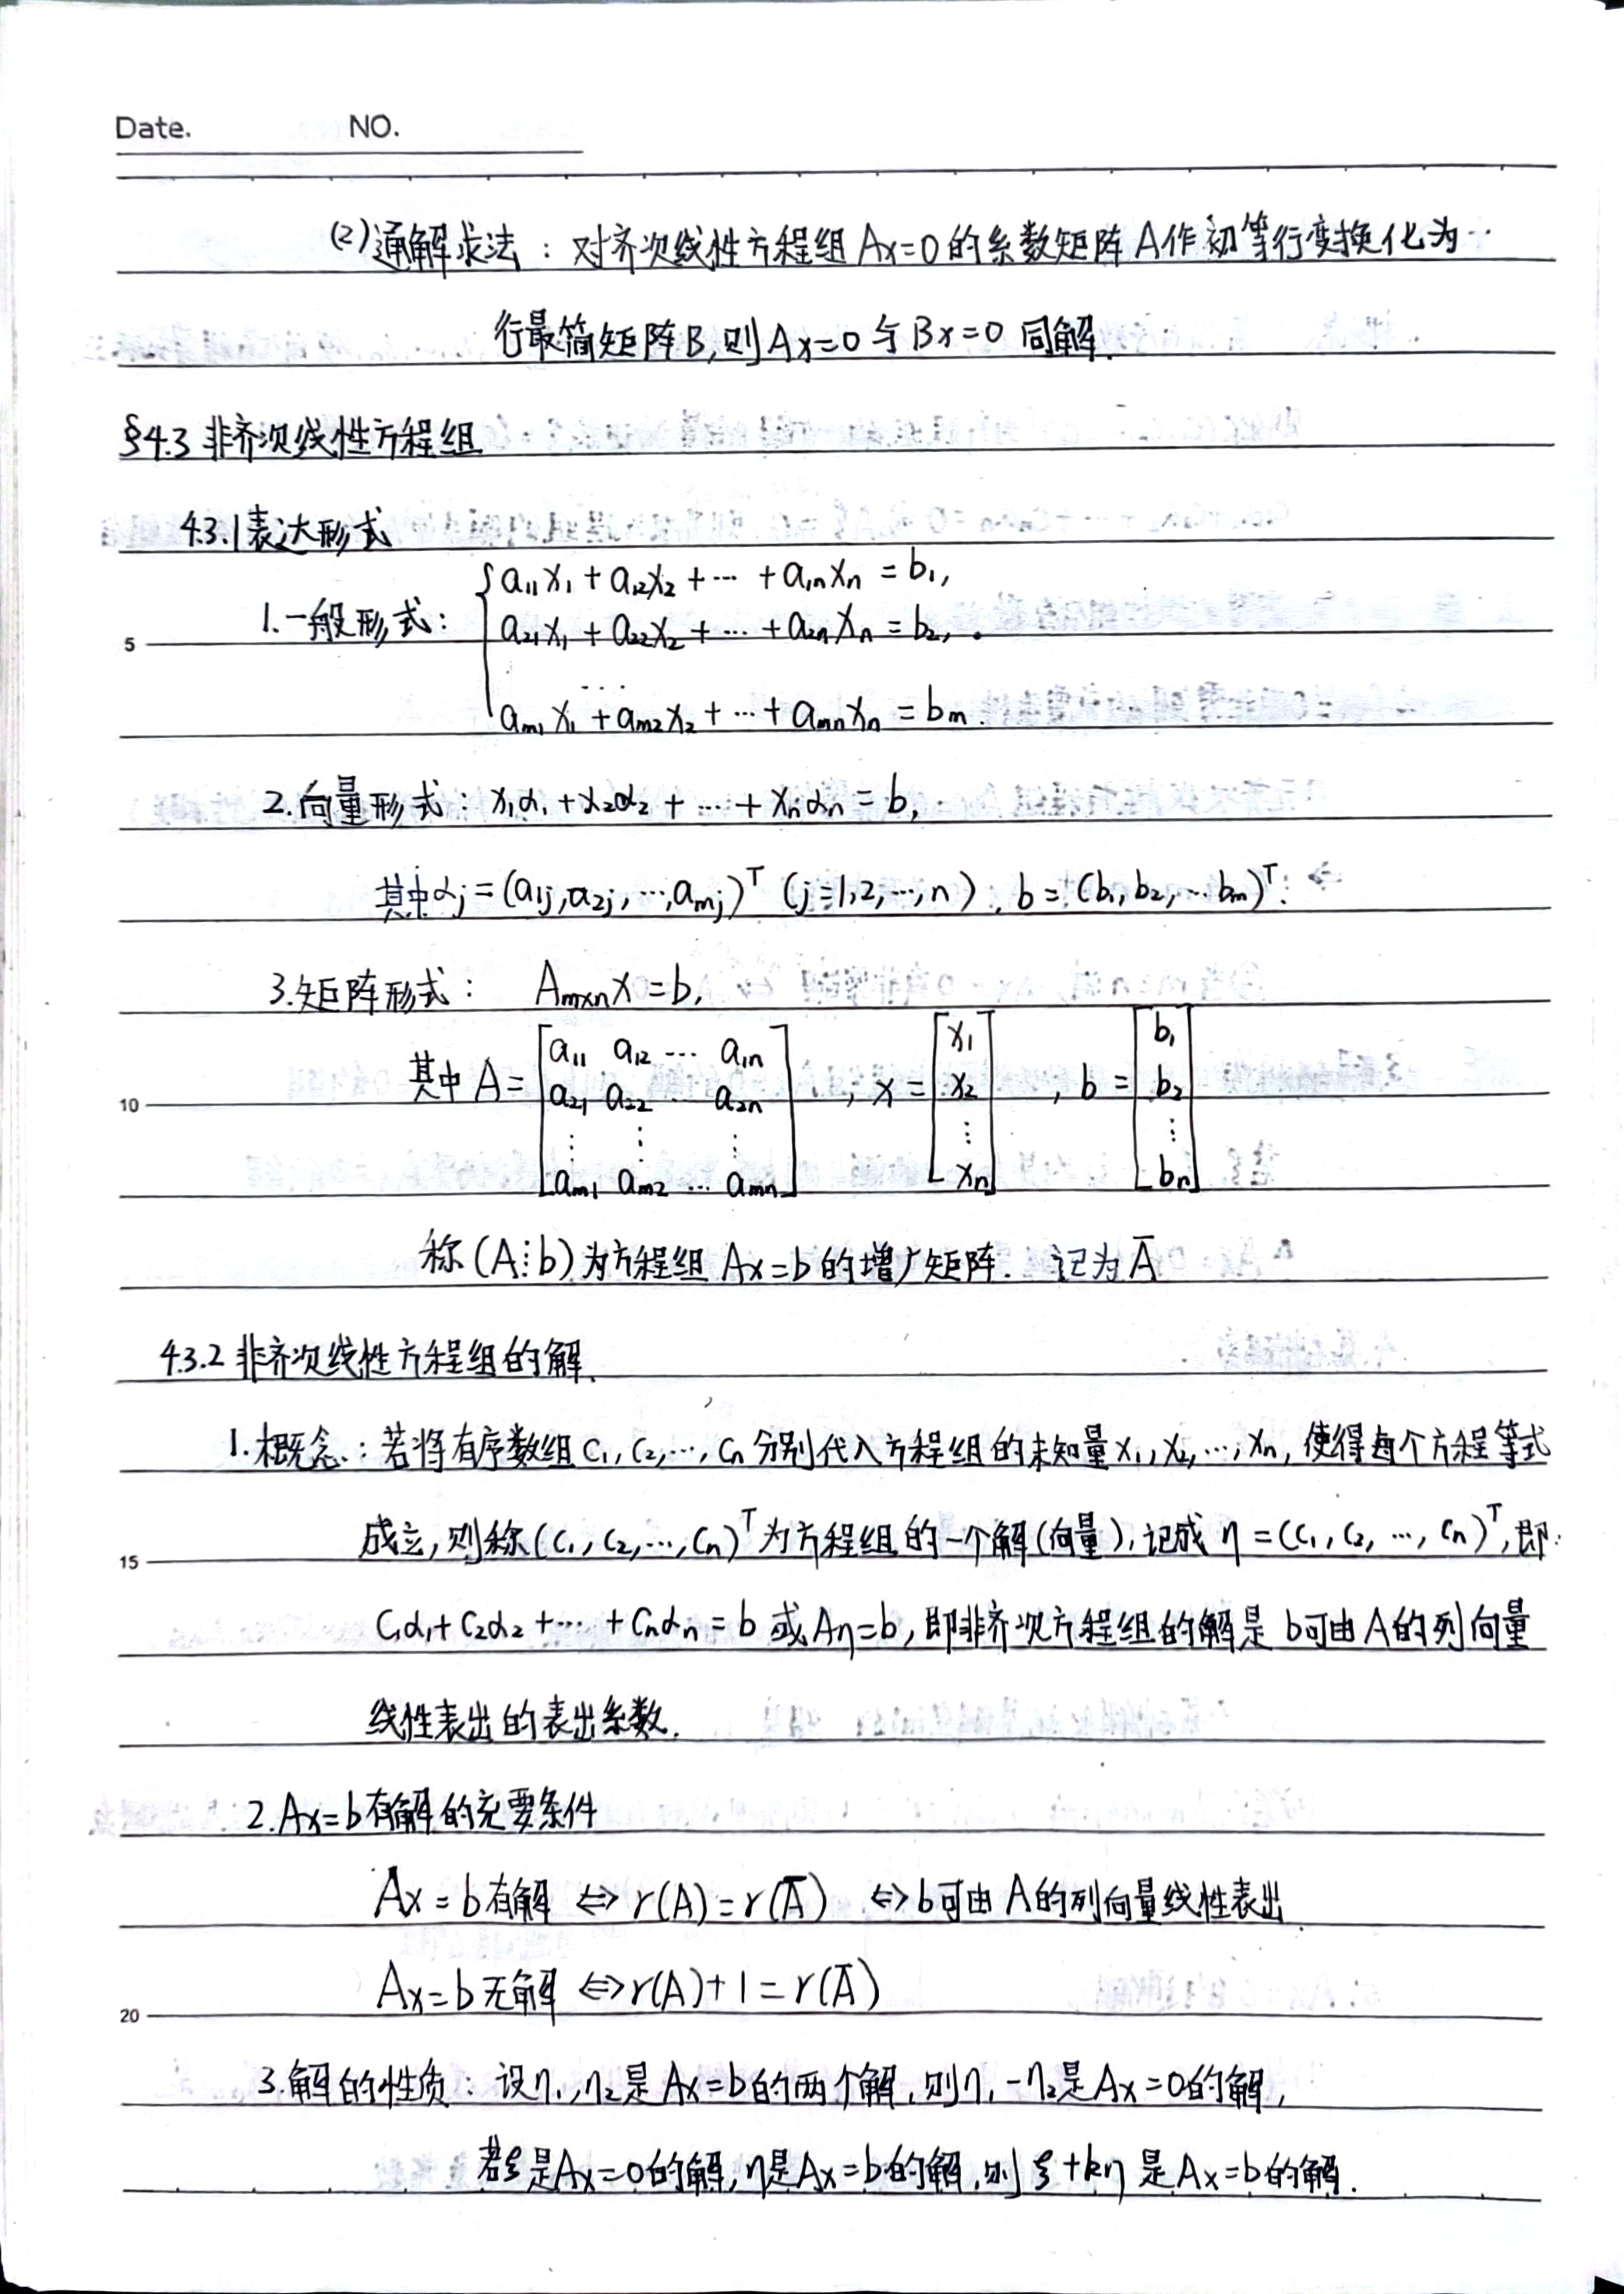 Date. NO.
(2)通解求法：对齐次线性方程组Ax=0的系数矩阵A作初等行变换化为
行最简矩阵B,则Ax=0与Bx=0同解.
§4.3 非齐次线性方程组
4.3.1表达形式
1.一般形式：
{a₁₁x₁+a₁₂x₂+⋯+a₁ₙxₙ=b₁,
a₂₁x₁+a₂₂x₂+⋯+a₂ₙxₙ=b₂,
⋯
5
aₘ₁x₁+aₘ₂x₂+⋯+aₘₙxₙ=bₘ.
2.向量形式：x₁α₁+x₂α₂+⋯+xₙαₙ=b,
其中αⱼ=(a₁ⱼ,a₂ⱼ,⋯,aₘⱼ)ᵀ (j=1,2,⋯,n), b=(b₁,b₂,⋯bₘ)ᵀ.
3.矩阵形式： Aₘₓₙx=b,
其中A=[a₁₁ a₁₂ ⋯ a₁ₙ], x=[x₁], b=[b₁]
10 a₂₁ a₂₂ ⋯ a₂ₙ x₂ b₂
⋮ ⋮ ⋮ ⋮ ⋮
aₘ₁ aₘ₂ ⋯ aₘₙ xₙ bₙ
称(A⋮b)为方程组Ax=b的增广矩阵. 记为Ā
4.3.2 非齐次线性方程组的解.
1.概念：若将有序数组c₁,c₂,⋯,cₙ分别代入方程组的未知量x₁,x₂,⋯,xₙ,使得每个方程等式
15 成立,则称(c₁,c₂,⋯,cₙ)ᵀ为方程组的一个解(向量),记成η=(c₁,c₂,⋯,cₙ)ᵀ,即:
c₁α₁+c₂α₂+⋯+cₙαₙ=b或Aη=b,即非齐次方程组的解是b可由A的列向量
线性表出的表出系数.
2.Ax=b有解的充要条件
Ax=b有解⇔r(A)=r(Ā) ⇔b可由A的列向量线性表出.
20 Ax=b无解⇔r(A)+1=r(Ā)
3.解的性质：设η₁,η₂是Ax=b的两个解,则η₁-η₂是Ax=0的解,
若ξ是Ax=0的解,η是Ax=b的解,则ξ+kη是Ax=b的解.